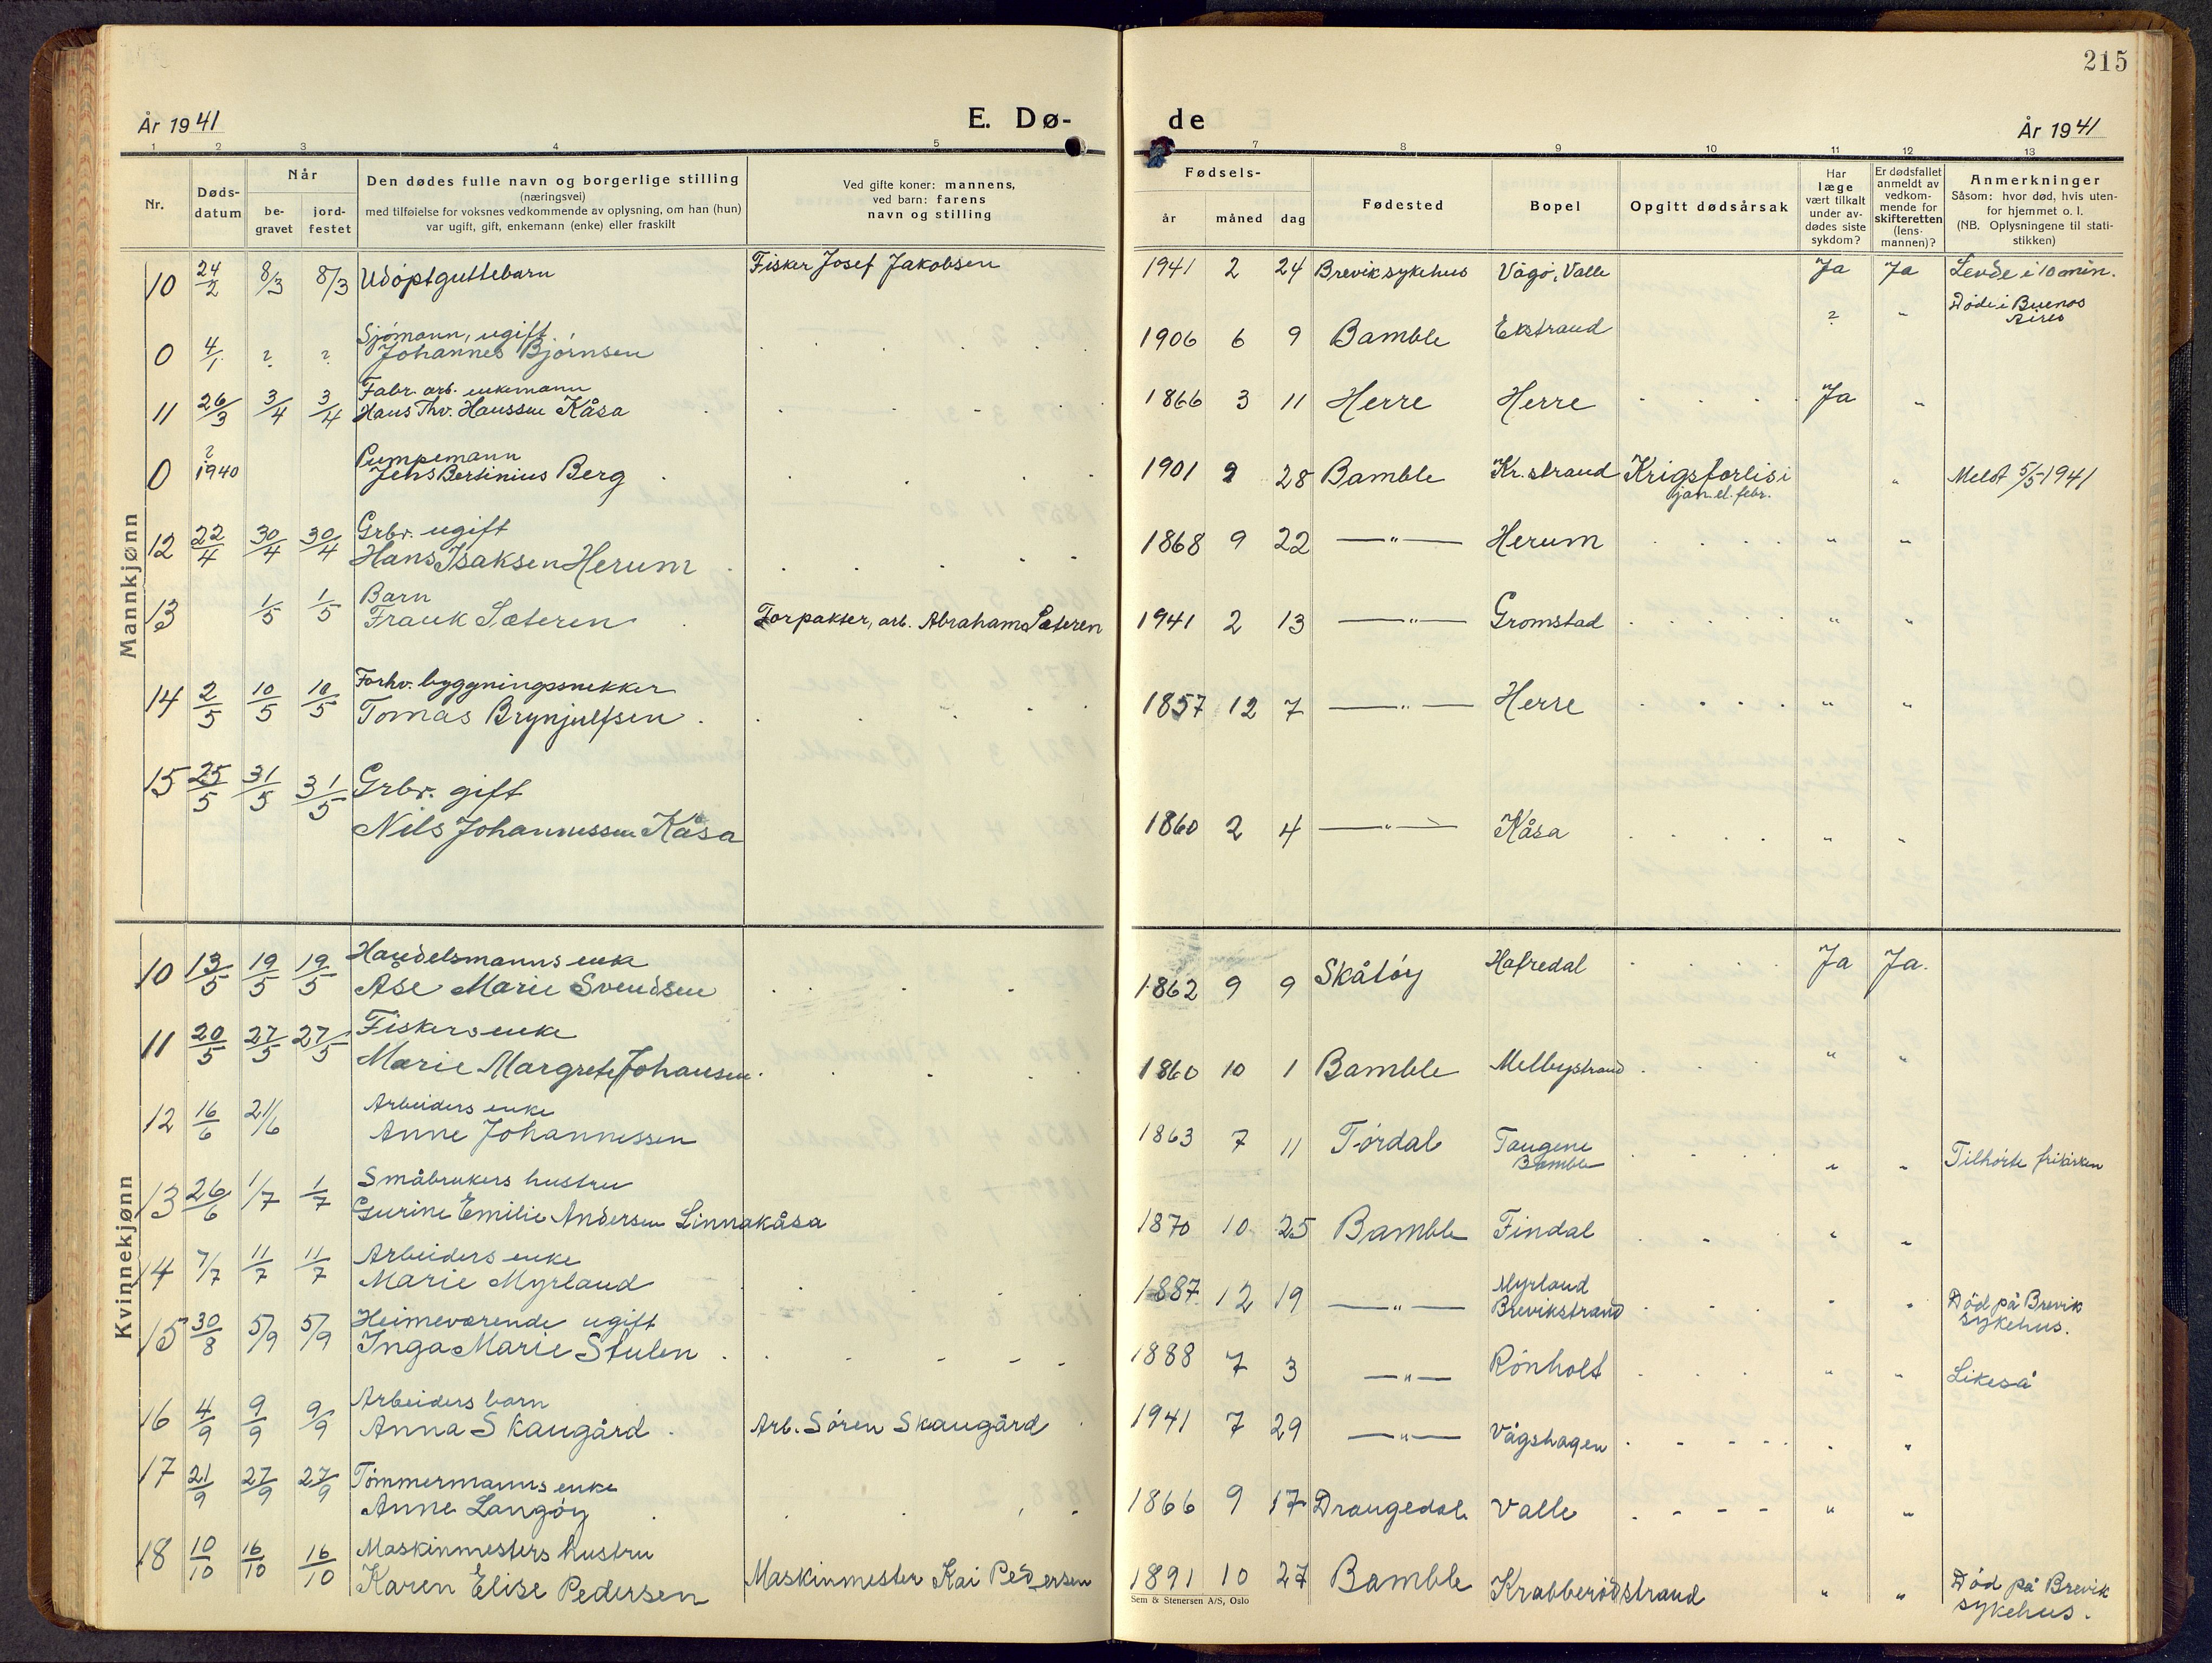 215
År 1941
E. Dø-
de
År 1941
1 2 3 4 5 7 8 9 10 11 12 13
Nr.
Døds-
datum
Når
be-
gravet
jord-
festet
Den dødes fulle navn og borgerlige stilling
(næringsvei)
med tilføielse for voksnes vedkommende av oplysning, om han (hun)
var ugift, gift, enkemann (enke) eller fraskilt
Ved gifte koner: mannens,
ved barn: farens
navn og stilling
Fødsels-
år måned dag
Fødested
Bopel
Opgitt dødsårsak
Har
læge
vært tilkalt
under av-
dødes siste
sykdom?
Er dødsfallet
anmeldt av
vedkom-
mende for
skifteretten
(lens-
mannen)?
Anmerkninger
Såsom: hvor død, hvis uten-
for hjemmet o. l.
(NB. Oplysningene til stati-
stikken)
Mannkjønn
10 24/2 8/3 8/3 Udöptguttebarn Fisker Josef Jakobsen 1941 2 24 Brevik sykehus Vågö, Valle Ja Ja Levde i 10 min.
Sjömann, ugift.
0 4/1 ? ? Johannes Björnsen 1906 6 9 Bamble Ekstrand ? " Döde i Buenos
Aires
Fabr. arb. enkemann
11 26/3 3/4 3/4 Hans Thv. Hanssen Kåsa 1866 3 11 Herre Herre Ja "
Pumpemann
0 ? 1940 Jens Bertinius Berg 1901 2 28 Bamble Kr.strand Krigsforlis i " Meldt 5/5-1941
jan. el. febr.
Grbr. ugift
12 22/4 30/4 30/4 Hans Isaksen Herum 1868 9 22 —"— Herum " "
Barn
13 1/5 1/5 Frank Sæteren Forpakter, arb. Abraham Sæteren 1941 2 13 —"— Gromstad " "
Forhv. byggningssnekker
14 2/5 10/5 10/5 Tomas Brynjulfsen 1857 12 7 —"— Herre " "
15 25/5 31/5 31/5 Grbr. gift
Nils Johannessen Kåsa 1860 2 4 —"— Kåsa " "
Kvinnekjønn
Handelsmanns enke
10 13/5 19/5 19/5 Åse Marie Svendsen 1862 9 9 Skåtöy Hafredal Ja Ja.
Fiskers enke
11 20/5 27/5 27/5 Marie Margrete Johansen 1860 10 1 Bamble Melbystrand " "
Arbeiders enke
12 16/6 21/6 Anne Johannessen 1863 7 11 Tördal Tangene " " Tilhörte frikirken
Bamble
Småbrukers hustru
13 26/6 1/7 1/7 Gurine Emilie Andersen Linnakåsa 1870 10 25 Bamble Findal " "
Arbeiders enke
14 7/7 11/7 11/7 Marie Myrland 1887 12 19 —"— Myrland
Brevikstrand " " Död på Brevik
sykehus.
Heimeværende ugift
15 30/8 5/9 5/9 Inga Marie Stulen 1888 7 3 —"— Rönholt " " Likeså
Arbeiders barn
16 4/9 9/9 9/9 Anna Skaugård Arb. Sören Skaugård 1941 7 29 —"— Vågshagen " "
Tömmermanns enke
17 21/9 27/9 27/9 Anne Langöy 1866 9 17 Draugedal Valle " "
Maskinmesters hustru
18 10/10 16/10 16/10 Karen Elise Pedersen Maskinmester Kai Pedersen 1891 10 27 Bamble Krabberödstrand " " Död på Brevik
sykehus.
Sem & Stenersen A/S, Oslo